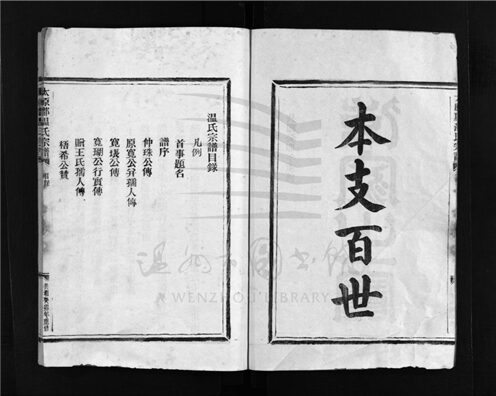 本支百世
温氏宗譜目錄
凡例
首事題名
譜序
仲珠公傳
原寬公弁孺人傳
寬㙯公傳
寬瑚公行實傳
贈王氏孺人傳
梧希公贊
太原郡温氏宗譜
WENZHOU LIBRARY